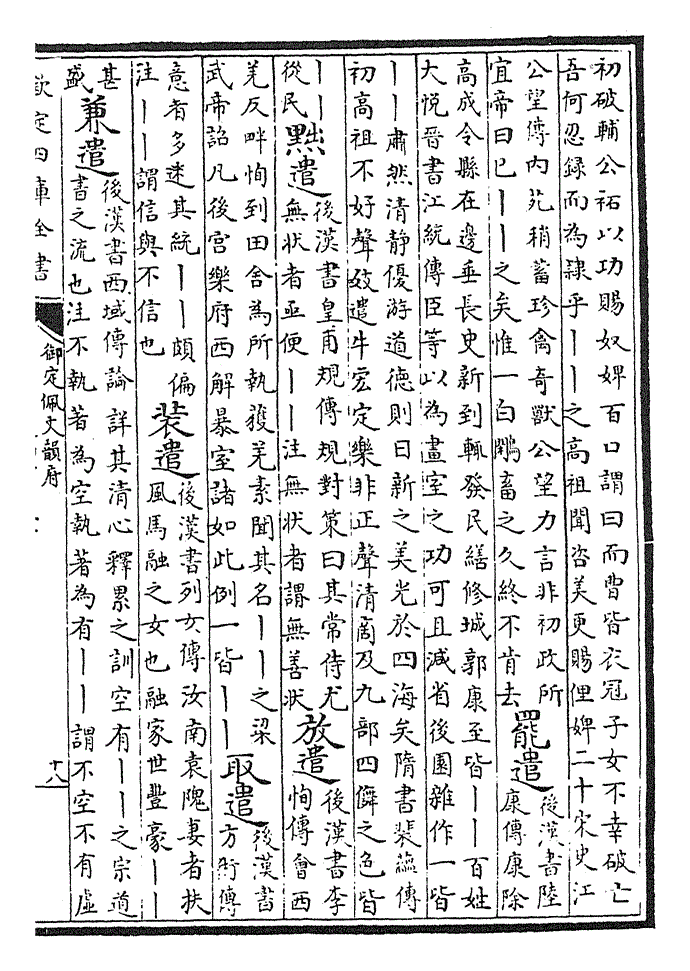 初破輔公祏以功賜奴婢百口謂曰而曹皆衣冠子女不幸破亡
吾何忍錄而為隸乎丨丨之高祖聞咨美更賜俚婢二十宋史江
公望傳內苑稍蓄珍禽奇獸公望力言非初政所
宜帝曰已丨丨之矣惟一白鷳畜之久終不肯去
罷遣
後漢書陸
康傳康除
高成令縣在邊垂長史新到輒發民繕修城郭康至皆丨丨百姓
大悅晉書江統傳臣等以為畫室之功可且減省後園雜作一皆
丨丨肅然清靜優游道德則日新之美光於四海矣隋書裴蘊傳
初高祖不好聲妓遣牛宏定樂非正聲清商及九部四儛之色皆
丨丨
從民
黜遣
後漢書皇甫規傳規對策曰其常侍尤
無狀者亟便丨丨注無狀者謂無善狀
放遣
後漢書李
恂傳會西
羌反畔恂到田舍為所執獲羌素聞其名丨丨之梁
武帝詔凡後宮樂府西解暴室諸如此例一皆丨丨
取遣
後漢書
方術傳
意者多迷其統丨丨頗偏
注丨丨謂信與不信也
裝遣
後漢書列女傳汝南袁隗妻者扶
風馬融之女也融家世豐豪丨丨
甚
盛
兼遣
後漢書西域傳論詳其清心釋累之訓空有丨丨之宗道
書之流也注不執著為空執著為有丨丨謂不空不有虛
欽定四庫全書
御定佩文韻府
十八